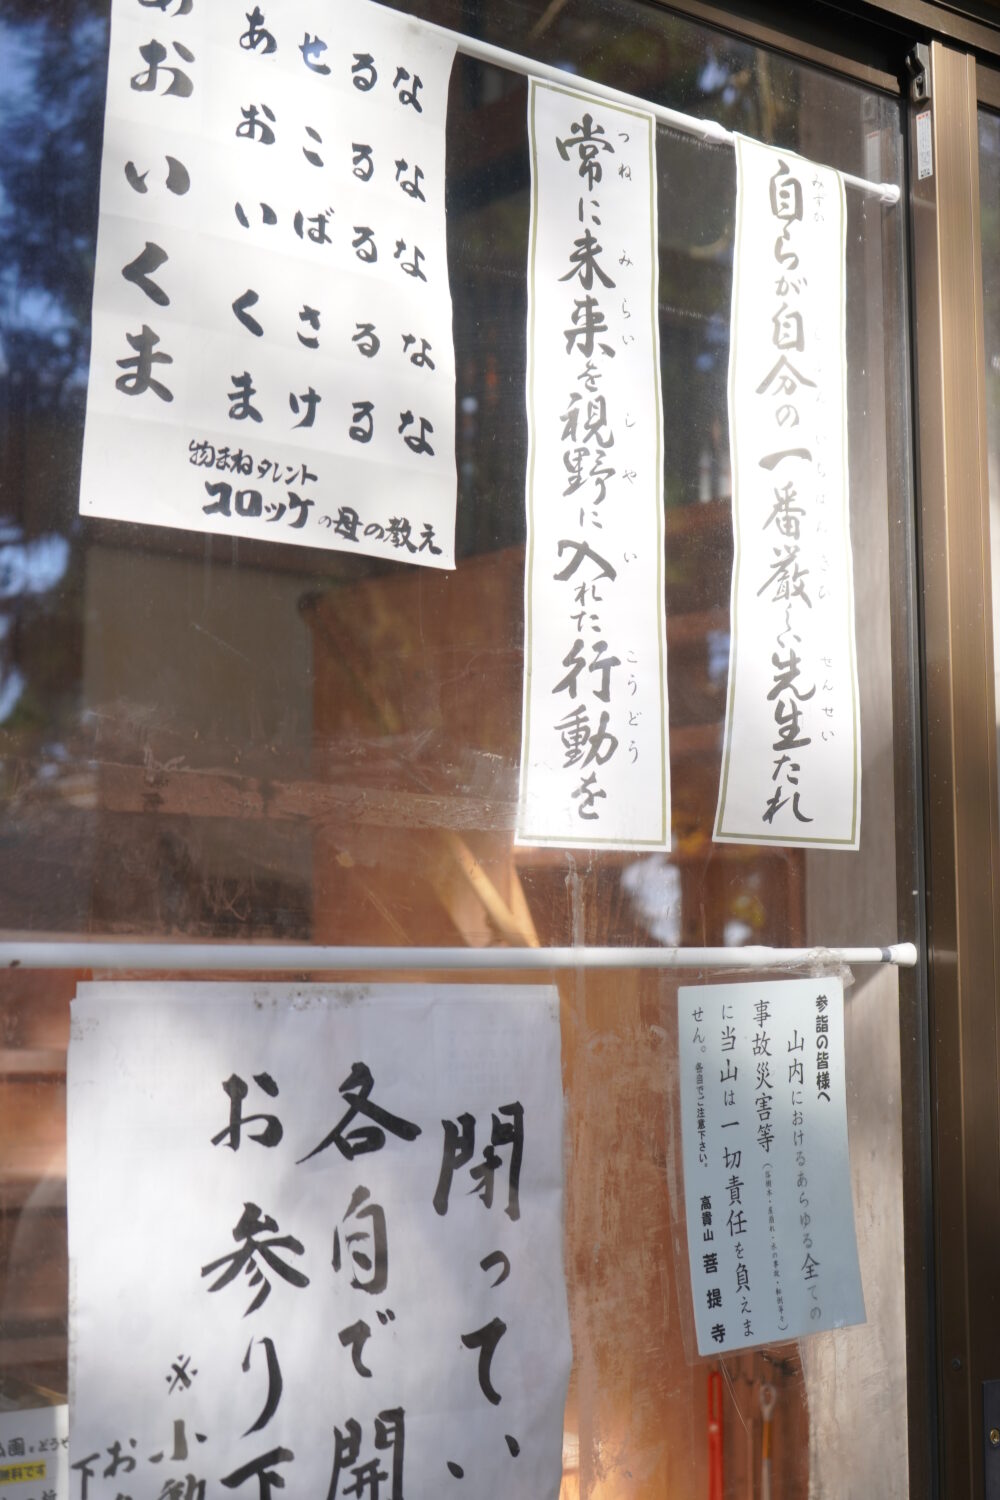 自らが自分の一番厳しい先生たれ
常に未来を視野に入れた行動を
つね みらい しや い こうどう
あせるな
おこるな
いばるな
くさるな
まけるな
あおいくま
物まねタレント
コロッケの母の教え
参詣の皆様へ
山内におけるあらゆる全ての
事故災害等
に当山は一切責任を負えま
せん。各自でご注意下さい。
高貴山 菩提寺
閉って、
各自で開
お参り下
※小動
お
下